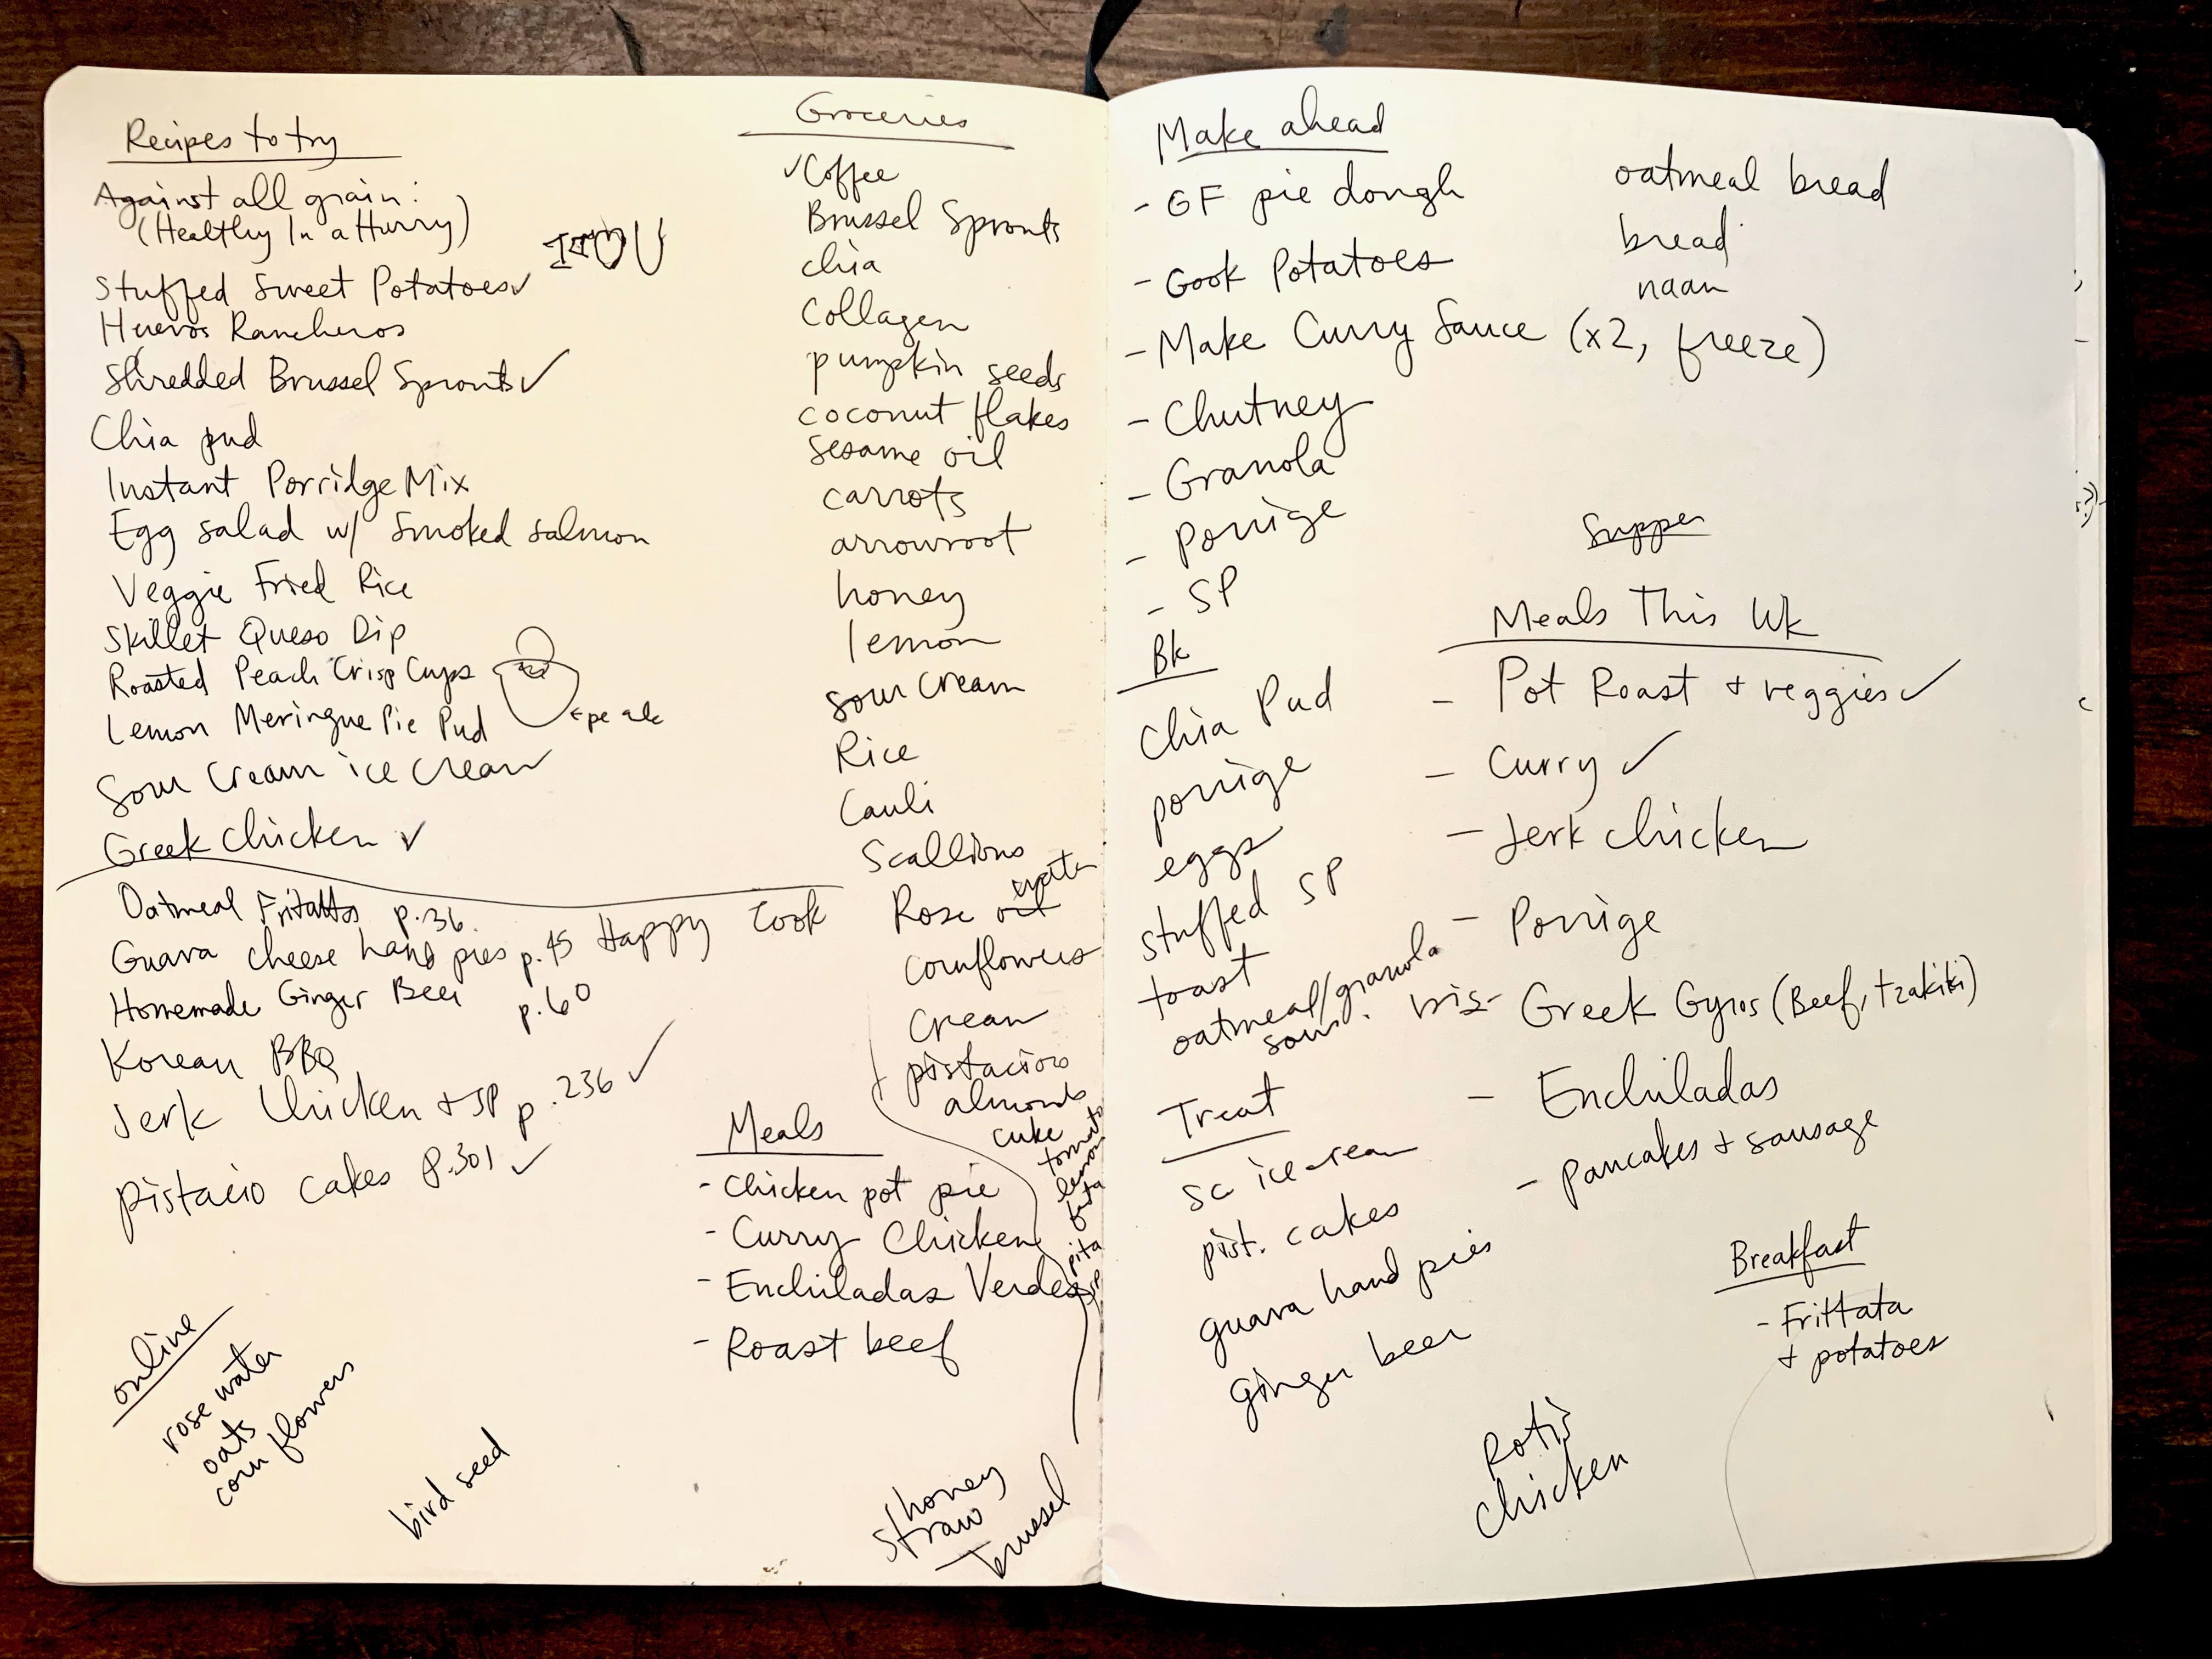 Recipes to try
Against all grain:
(Healthy In a Hurry)
Stuffed Sweet Potatoes ✓
Huevos Rancheros
Shredded Brussel Sprouts ✓
Chia pud
Instant Porridge Mix
Egg salad w/ Smoked salmon
Veggie Fried Rice
Skillet Queso Dip
Roasted Peach Crisp Cups
Lemon Meringue Pie Pud
Sour Cream ice cream
Greek chicken ✓
I ♡ U
Oatmeal p.36
Guava cheese hand pies p.45 Happy Cook
Homemade Ginger Beer p.60
Korean BBQ
Jerk Chicken + SP p.236 ✓
pistacio cakes p.301 ✓
online
rose water
oats
corn flowers
bird seed
Groceries
✓ Coffee
Brussel Sprouts
chia
Collagen
pumpkin seeds
coconut flakes
sesame oil
carrots
arrowroot
honey
lemon
sour cream
Rice
Cauli
Scallions
Rose oil water
cornflowers
cream
pistacios
almonds
cuke
tomato
lemon
feta
pita
Meals
- Chicken pot pie
- Curry Chicken
- Enchiladas Verdes
- Roast beef
honey
straw
brussel
Make ahead
- GF pie dough
- Cook Potatoes
- Make Curry Sauce (x2, freeze)
- Chutney
- Granola
- Porrige
- SP
oatmeal bread
bread
naan
Bk
Chia Pud
porrige
eggs
stuffed SP
toast
oatmeal/granola
Treat
sc ice cream
pist. cakes
guava hand pies
ginger beer
Supper
Meals This Wk
- Pot Roast + veggies ✓
- Curry ✓
- Jerk chicken
- Porrige
- Greek Gyros (Beef, tzakiki)
- Enchiladas
- pancakes + sausage
Breakfast
- Frittata
+ potatoes
Rotis
chicken